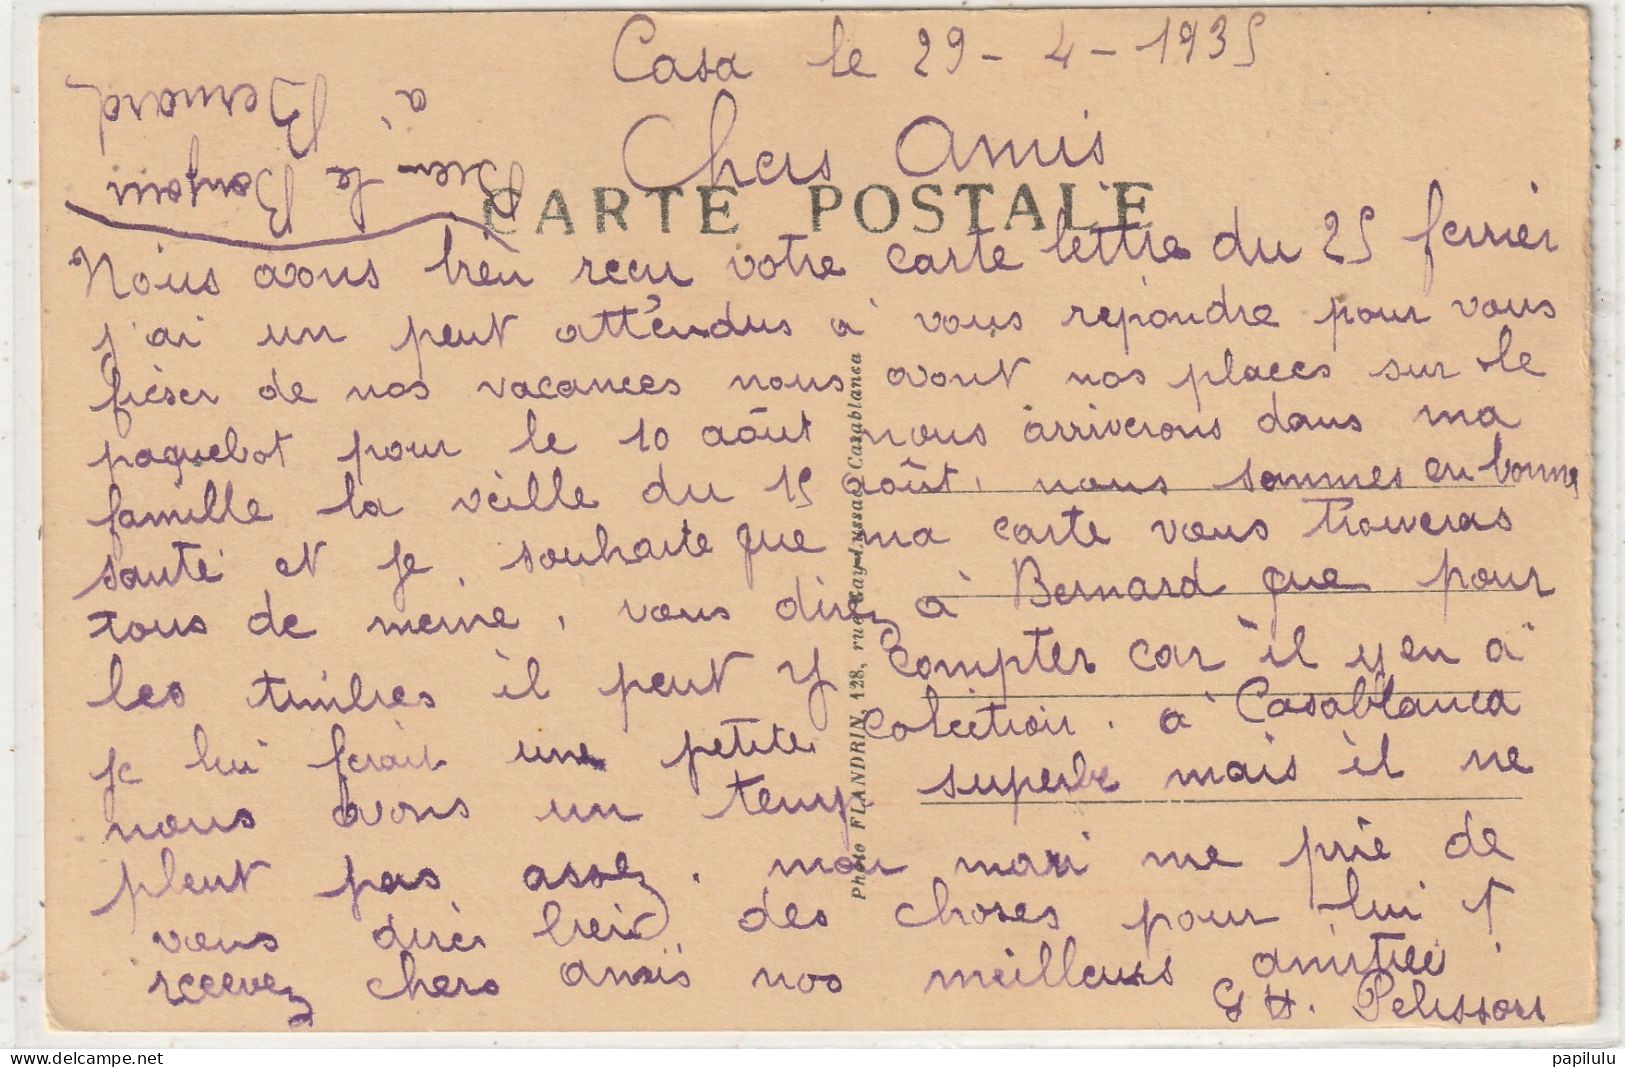 Casa le 29-4-1935
Chers Amis
Bien le Bonjour
à
Bernard
CARTE POSTALE
Nous avons bien reçu votre carte lettre du 25 fevrier
j'ai un peut attendus à vous repondre pour vous
fixser de nos vacances nous avont nos places sur le
paquebot pour le 10 août nous arriverons dans ma
famille la veille du 15 août, nous sommes en bonne
santé et je souhaite que ma carte vous trouveras
tous de meme, vous direz à Bernard que pour
les timbres il peut y compter car il y en à
je lui ferait une petite colection. à Casablanca
nous avons un temp superbe mais il ne
pleut pas assez, mon mari me prie de
vous direr bien des choses pour lui !
recevez chers amis nos meilleurs amitiées
G H. Pelisson
Photo FLANDRIN, 128, rue Gay-Lussac, Casablanca
papilulu